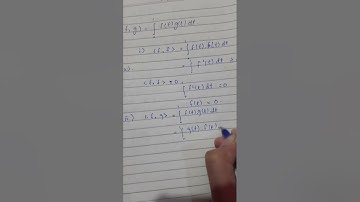 <f, g> = ∫ f(t) g(t) dt
i) <f, f> = ∫ f(t) f(t) dt
= ∫ f²(t) dt ≥
<f, f> = 0
∫ f²(t) dt = 0
f(t) = 0
<f, g> = ∫ f(t) g(t) dt
= ∫ g(t) f(t)